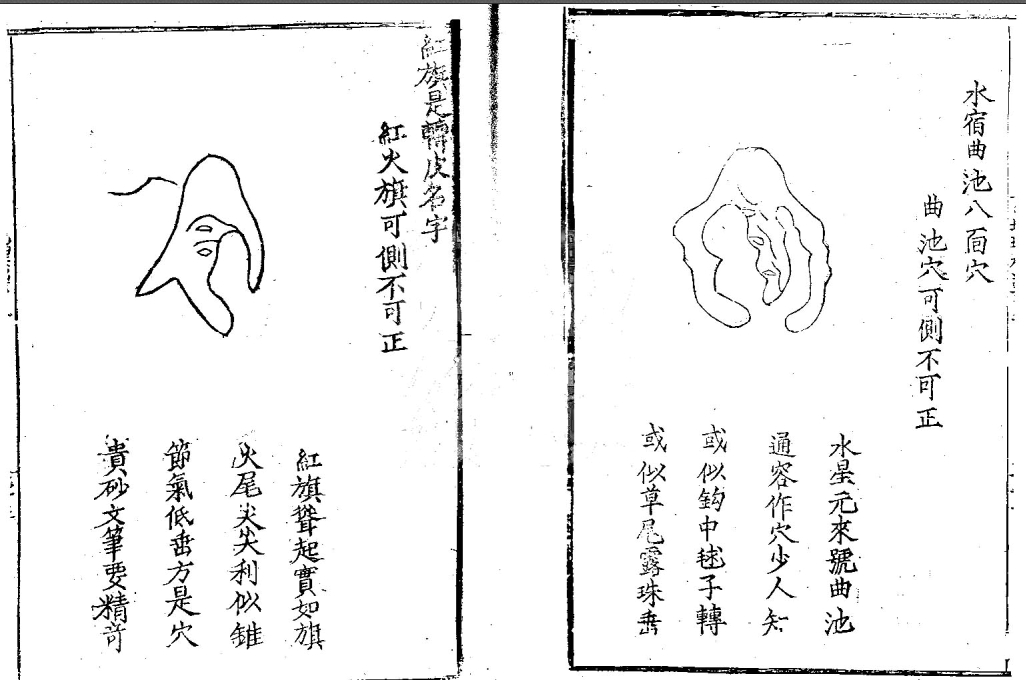 水宿曲池八面穴
曲池穴可側不可正
水星元來號曲池
通容作穴少人知
或似鈎中毬子轉
或似草尾露珠垂
紅旗是轉皮名字
紅火旗可側不可正
紅旗聳起實如旗
火尾尖尖利似錐
節氣低垂方是穴
貴砂文筆要精竒